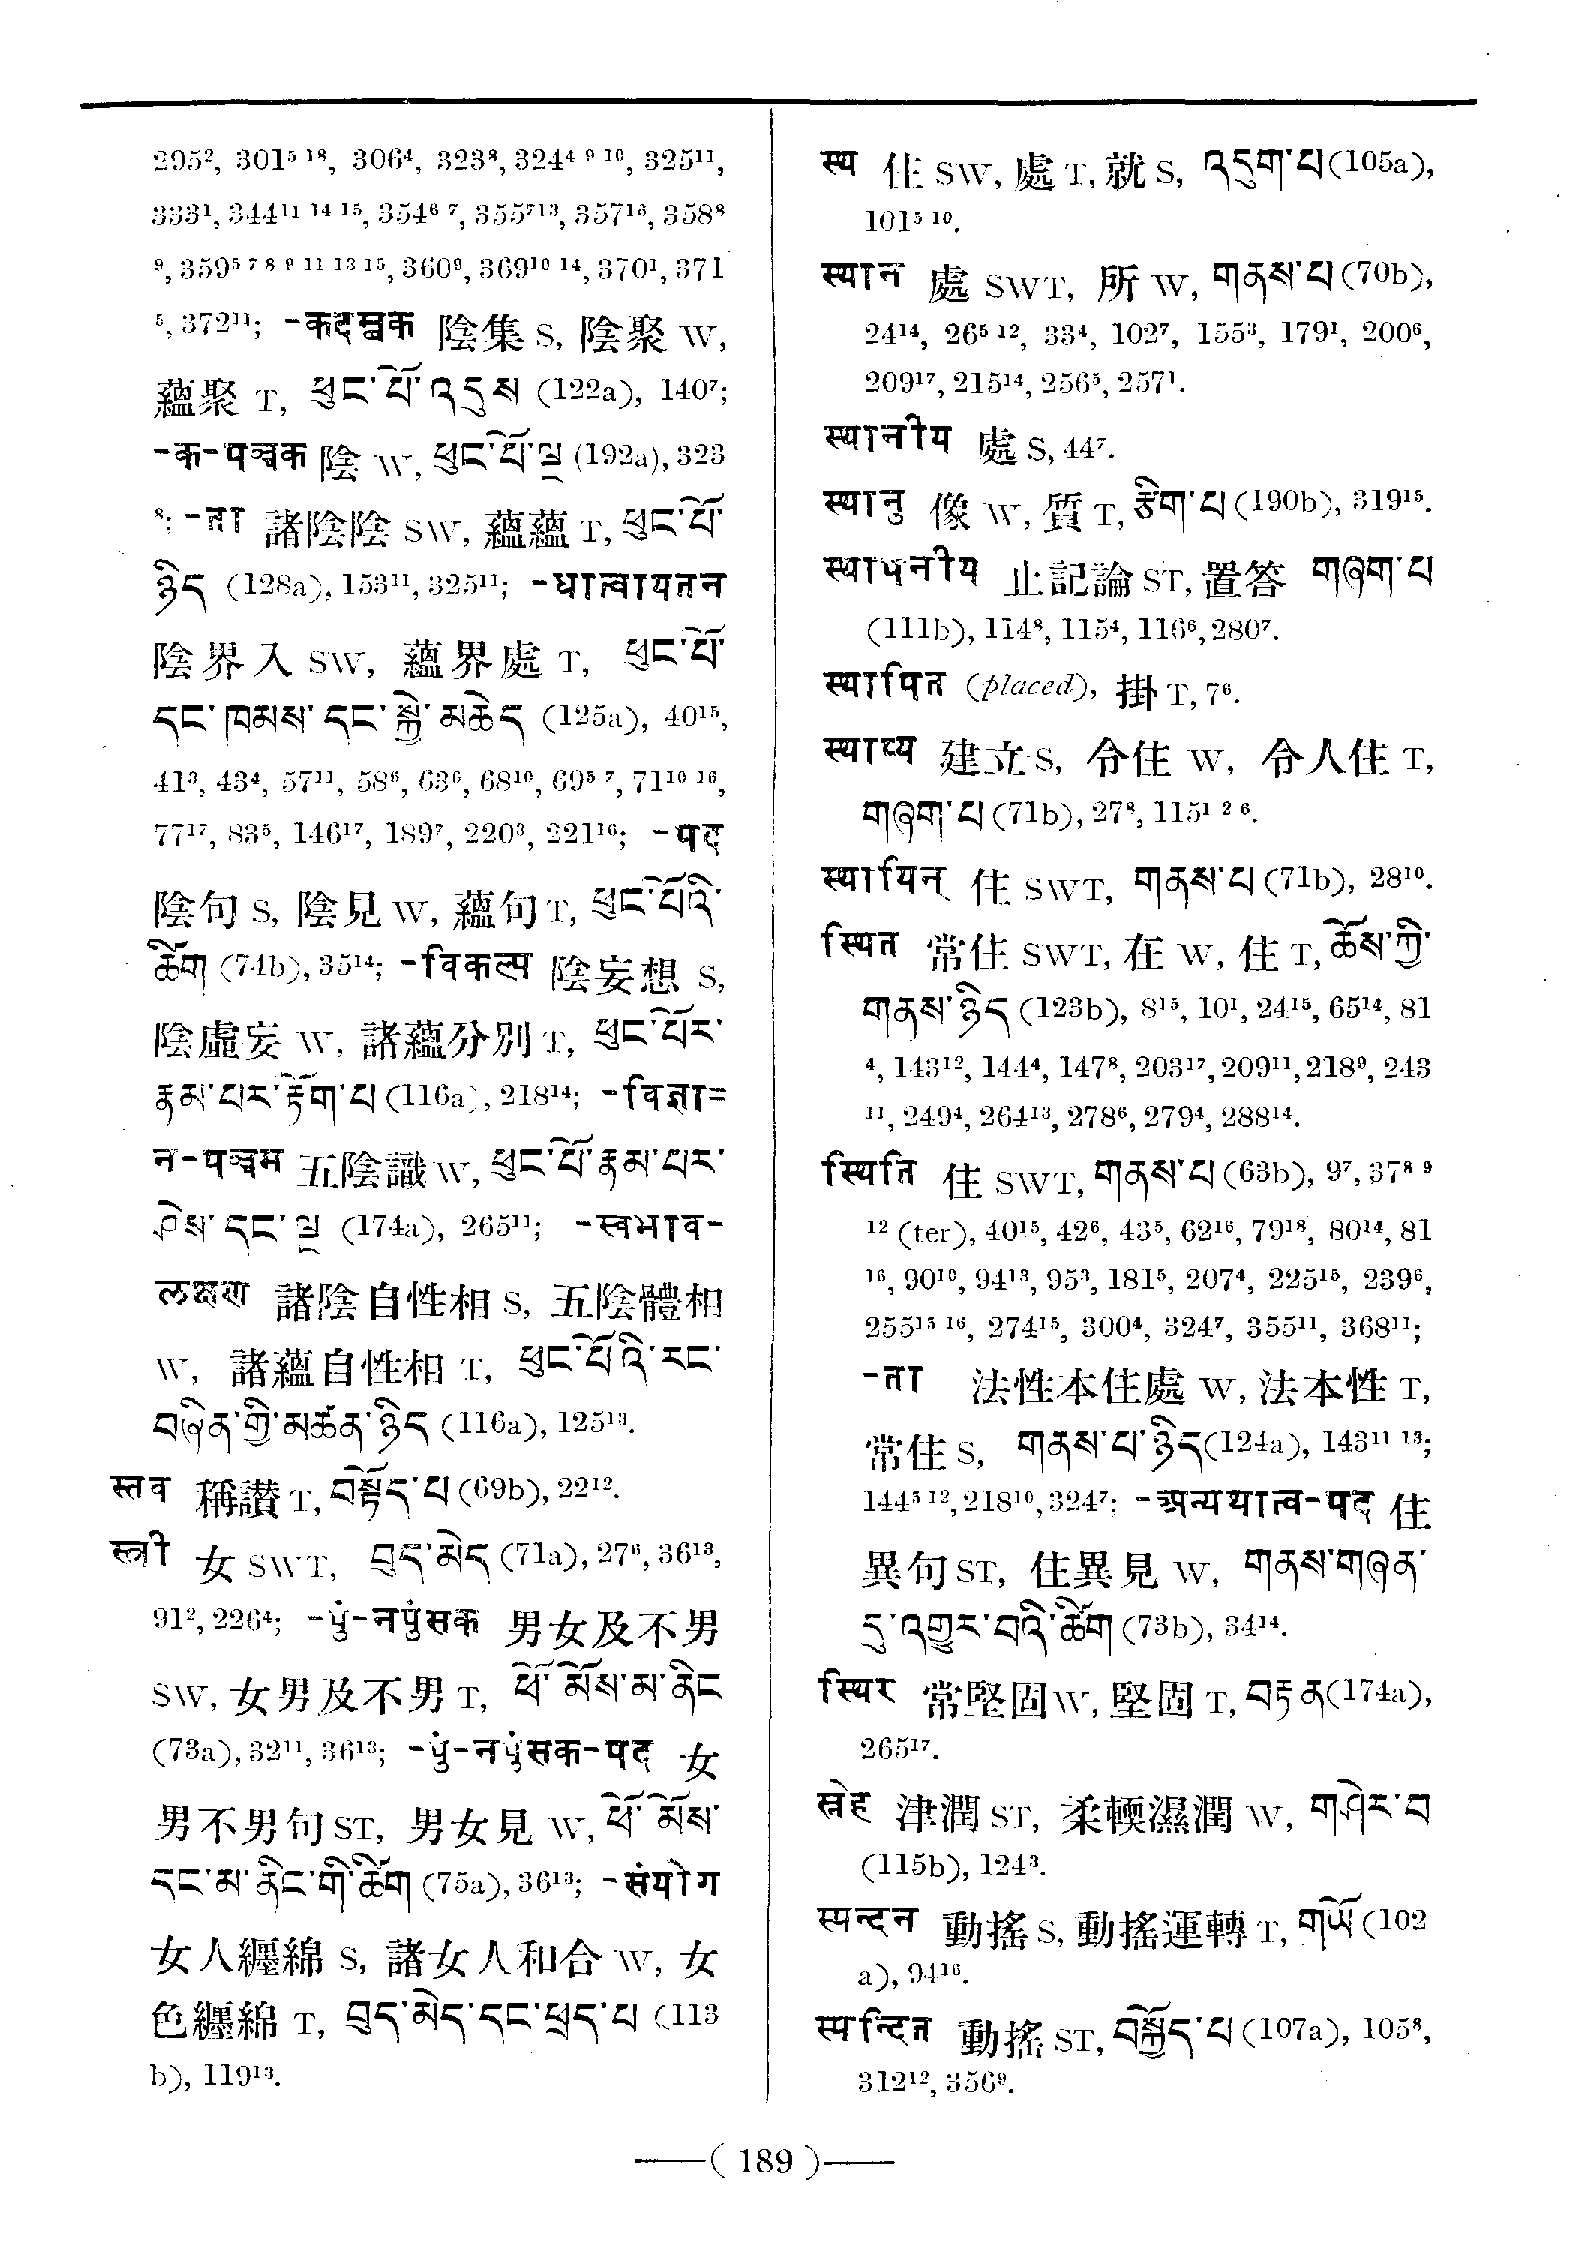 295², 301⁵ ¹⁸, 306⁴, 323⁸, 324⁴ ⁹ ¹⁰, 325¹¹,
333¹, 344¹¹ ¹⁴ ¹⁵, 354⁶ ⁷, 355⁷ ¹³, 357¹⁶, 358⁸
⁹, 359⁵ ⁷ ⁸ ⁹ ¹¹ ¹³ ¹⁵, 360⁹, 369¹⁰ ¹⁴, 370¹, 371
⁵, 372¹¹; -कदम्बक 陰集 S, 陰聚 W,
蘊聚 T, ཕུང་པོ་འདུས (122a), 140⁷;
-क-पञ्चक 陰 W, ཕུང་པོ་ལྔ (192a), 323
⁸; -ता 諸陰陰 SW, 蘊蘊 T, ཕུང་པོ་
ཉིད (128a), 153¹¹, 325¹¹; -धात्वायतन
陰界入 SW, 蘊界處 T, ཕུང་པོ་
དང་ཁམས་དང་སྐྱེ་མཆེད (125a), 40¹⁵,
41³, 43⁴, 57¹¹, 58⁶, 63⁶, 68¹⁰, 69⁵ ⁷, 71¹⁰ ¹⁶,
77¹⁷, 83⁵, 146¹⁷, 189⁷, 220³, 221¹⁶; -पद
陰句 S, 陰見 W, 蘊句 T, ཕུང་པོའི་
ཚིག (74b), 35¹⁴; -विकल्प 陰妄想 S,
陰虛妄 W, 諸蘊分別 T, ཕུང་པོར་
རྣམ་པར་རྟོག་པ (116a), 218¹⁴; -विज्ञा=
न-पञ्चम 五陰識 W, ཕུང་པོ་རྣམ་པར་
ཤེས་དང་ལྔ (174a), 265¹¹; -स्वभाव-
लक्षण 諸陰自性相 S, 五陰體相
W, 諸蘊自性相 T, ཕུང་པོའི་རང་
བཞིན་གྱི་མཚན་ཉིད (116a), 125¹³.
स्तव 稱讃 T, བསྟོད་པ (69b), 22¹².
स्त्री 女 SWT, བུད་མེད (71a), 27⁶, 36¹³,
91², 226⁴; -पुं-नपुंसक 男女及不男
SW, 女男及不男 T, ཕོ་མོས་མ་ནིང
(73a), 32¹¹, 36¹³; -पुं-नपुंसक-पद 女
男不男句 ST, 男女見 W, ཕོ་མོས་
དང་མ་ནིང་གི་ཚིག (75a), 36¹³; -संयोग
女人纒綿 S, 諸女人和合 W, 女
色纒綿 T, བུད་མེད་དང་ཕྲད་པ (113
b), 119¹³.
स्थ 住 SW, 處 T, 就 S, འདུག་པ (105a),
101⁵ ¹⁰.
स्थान 處 SWT, 所 W, གནས་པ (70b),
24¹⁴, 26⁵ ¹², 33⁴, 102⁷, 155³, 179¹, 200⁶,
209¹⁷, 215¹⁴, 256⁵, 257¹.
स्थानीय 處 S, 44⁷.
स्थानु 像 W, 質 T, རྩིག་པ (190b), 319¹⁵.
स्थापनीय 止記論 ST, 置答 གཞག་པ
(111b), 114⁸, 115⁴, 116⁶, 280⁷.
स्थापित (placed), 掛 T, 7⁶.
स्थाप्य 建立 S, 令住 W, 令人住 T,
གཞག་པ (71b), 27⁸, 115¹ ² ⁶.
स्थायिन् 住 SWT, གནས་པ (71b), 28¹⁰.
स्थित 常住 SWT, 在 W, 住 T, ཆོས་ཀྱི་
གནས་ཉིད (123b), 8¹⁵, 10¹, 24¹⁵, 65¹⁴, 81
⁴, 143¹², 144⁴, 147⁸, 203¹⁷, 209¹¹, 218⁹, 243
¹¹, 249⁴, 264¹³, 278⁶, 279⁴, 288¹⁴.
स्थिति 住 SWT, གནས་པ (63b), 9⁷, 37⁸ ⁹
¹² (ter), 40¹⁵, 42⁶, 43⁵, 62¹⁶, 79¹⁸, 80¹⁴, 81
¹⁶, 90¹⁰, 94¹³, 95³, 181⁵, 207⁴, 225¹⁵, 239⁶,
255¹⁵ ¹⁶, 274¹⁵, 300⁴, 324⁷, 355¹¹, 368¹¹;
-ता 法性本住處 W, 法本性 T,
常住 S, གནས་པ་ཉིད (124a), 143¹¹ ¹³;
144⁵ ¹², 218¹⁰, 324⁷; -अन्यथात्व-पद 住
異句 ST, 住異見 W, གནས་གཞན་
དུ་འགྱུར་བའི་ཚིག (73b), 34¹⁴.
स्थिर 常堅固 W, 堅固 T, བརྟན (174a),
265¹⁷.
स्नेह 津潤 ST, 柔輭濕潤 W, གཤེར་བ
(115b), 124³.
स्पन्दन 動搖 S, 動搖運轉 T, གཡོ (102
a), 94¹⁶.
स्पन्दित 動搖 ST, བསྐྱོད་པ (107a), 105⁸,
312¹², 356⁹.
—( 189 )—